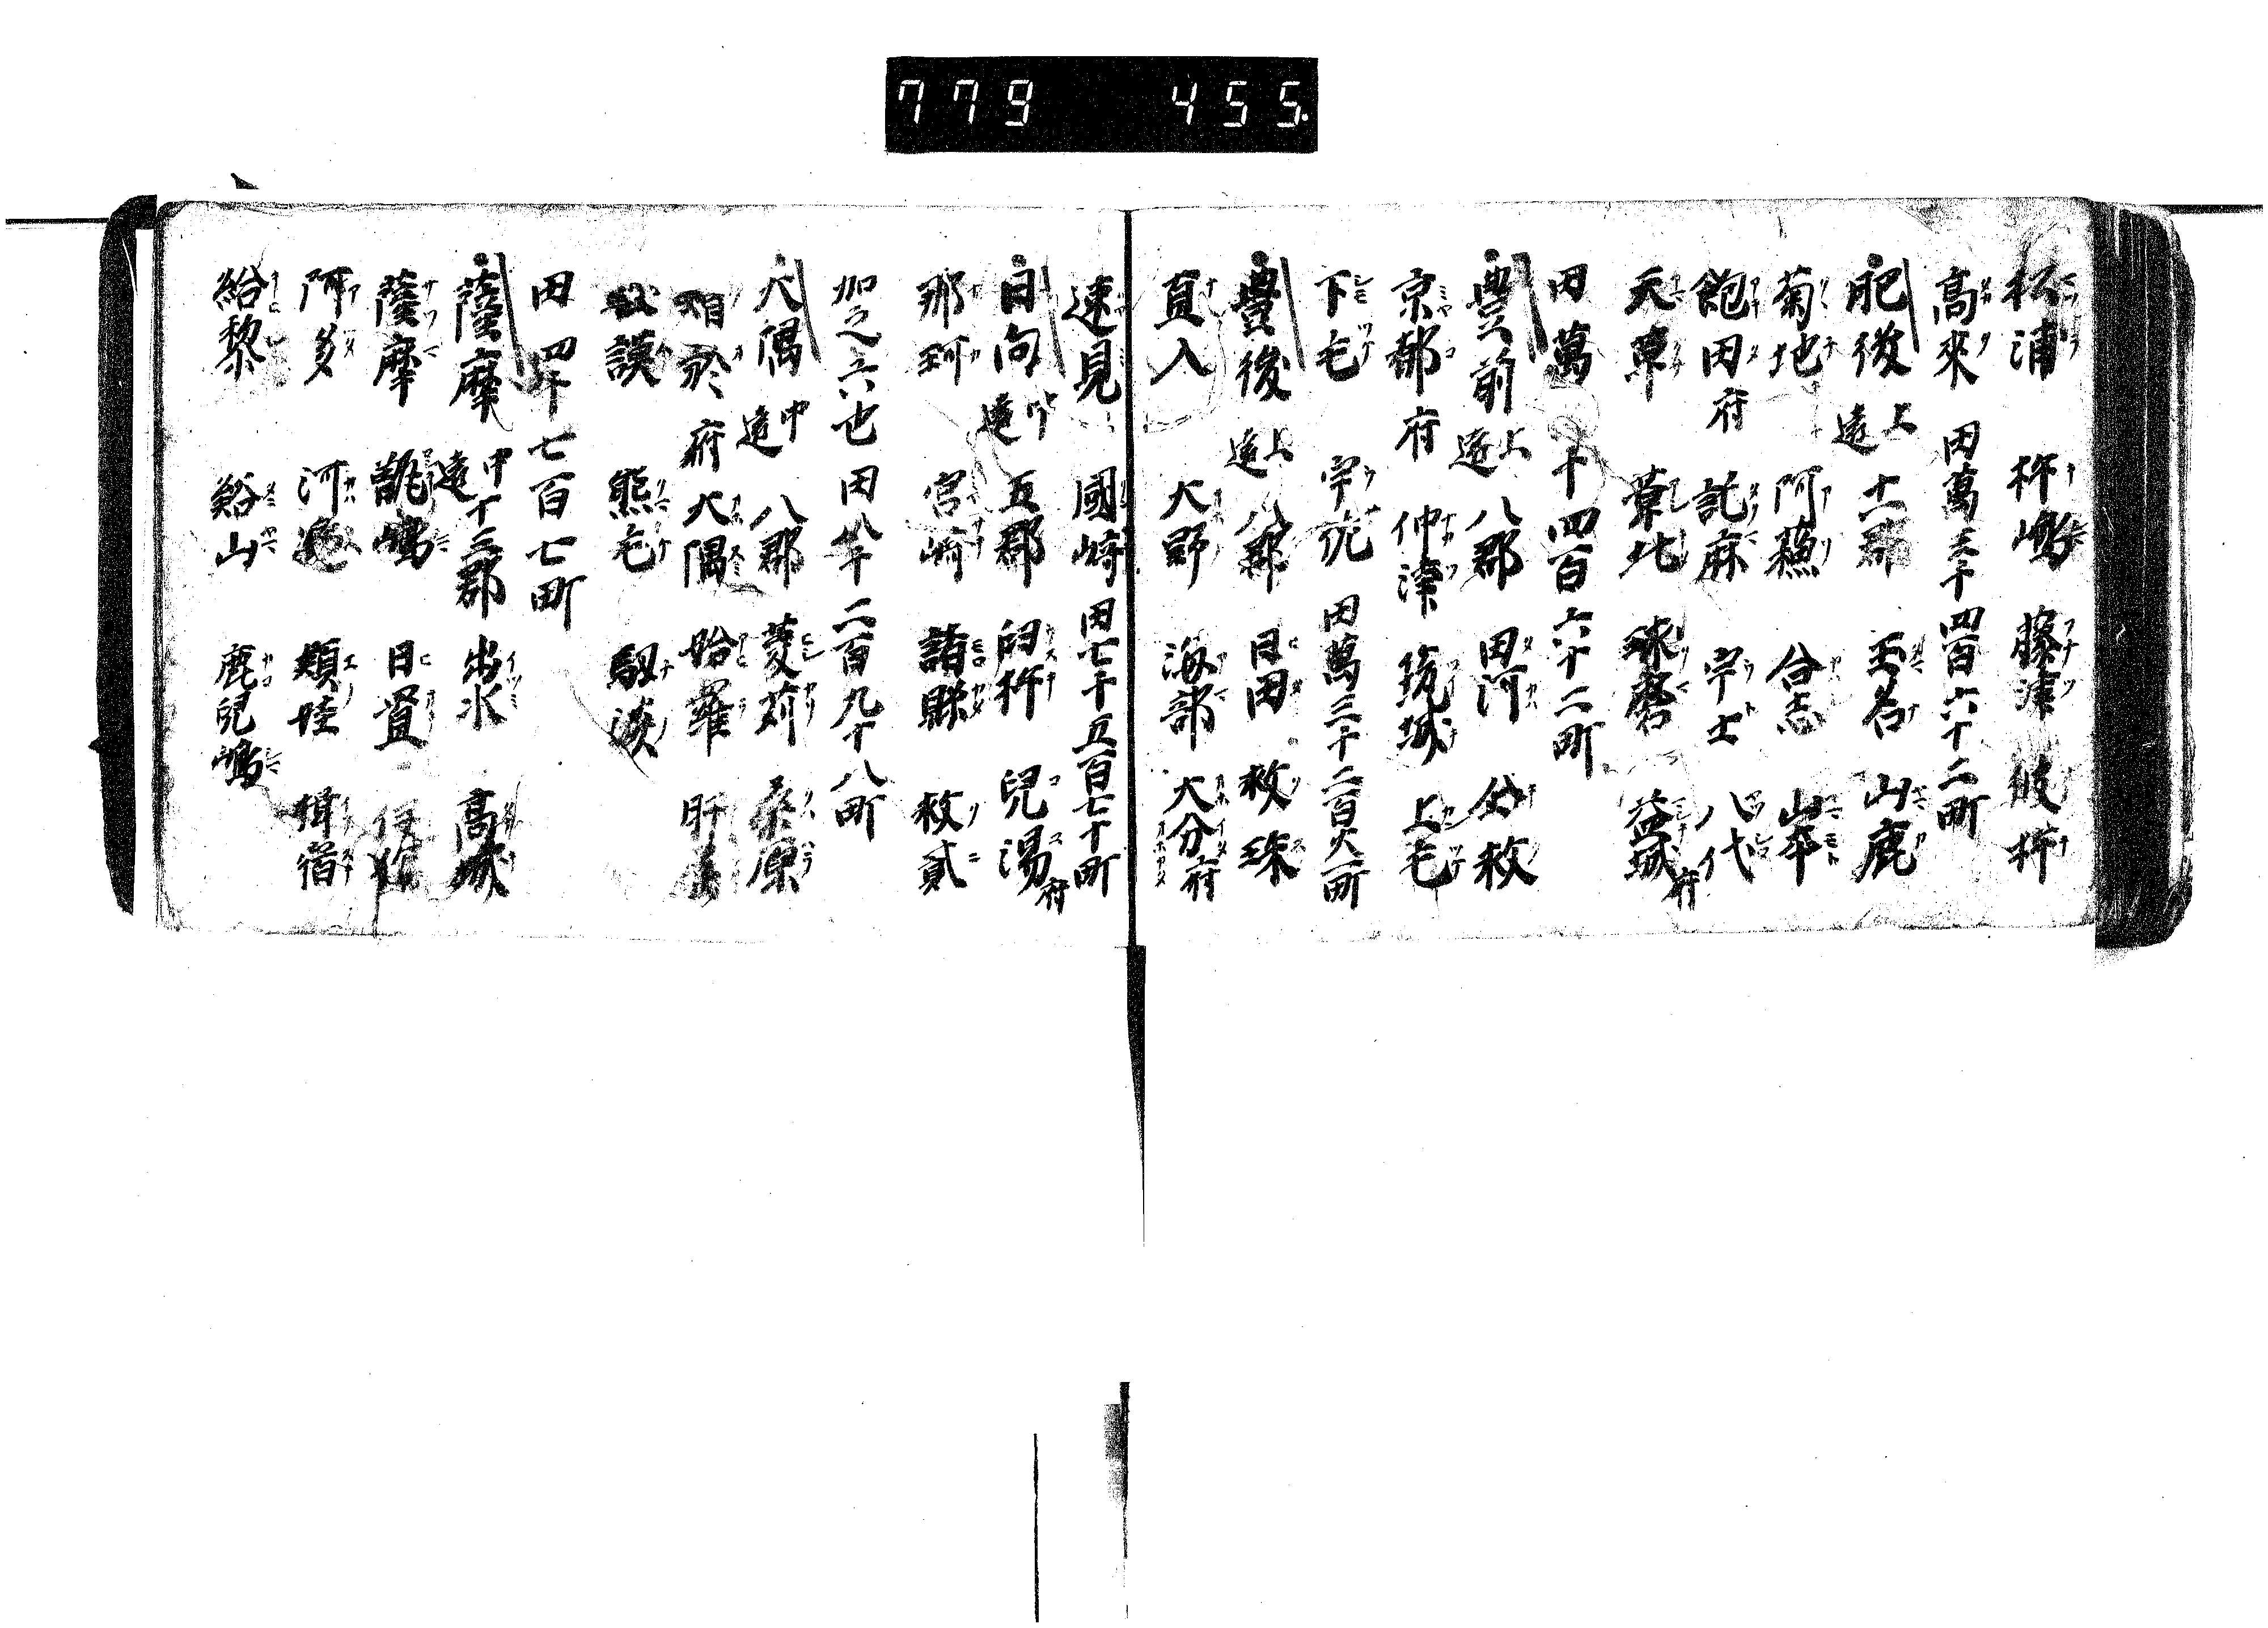 779 455.
松浦 杵嶋 藤津 彼杵
高來 田萬三千四百六十二町
肥後 上遠 十一郡 玉名 山鹿
菊地 阿蘇 合志 山本
飽田府 託麻 宇土 八代
天草 葦北 球磨 益城府
田萬 千四百六十二町
豊前 上遠 八郡 田河 企救
京都府 仲津 筑城 上毛
下毛 宇佐 田萬三千二百 町
豊後 上遠 八郡 日田 救珠
直入 大野 海部 大分府
速見 國崎 田七千五百七十町
日向 中遠 五郡 臼杵 兒湯府
那珂 宮崎 諸縣 救貳
加之六也 田八千二百九十八町
大隅 中遠 八郡 菱苅 桑原
府 大隅 始羅 肝
謨 熊毛 馭
田四千七百七町
薩摩 中遠 十三郡 出水 高城
薩摩 甑嶋 日置
阿多 河邊 頴娃 揖宿
給黎 谿山 鹿兒嶋